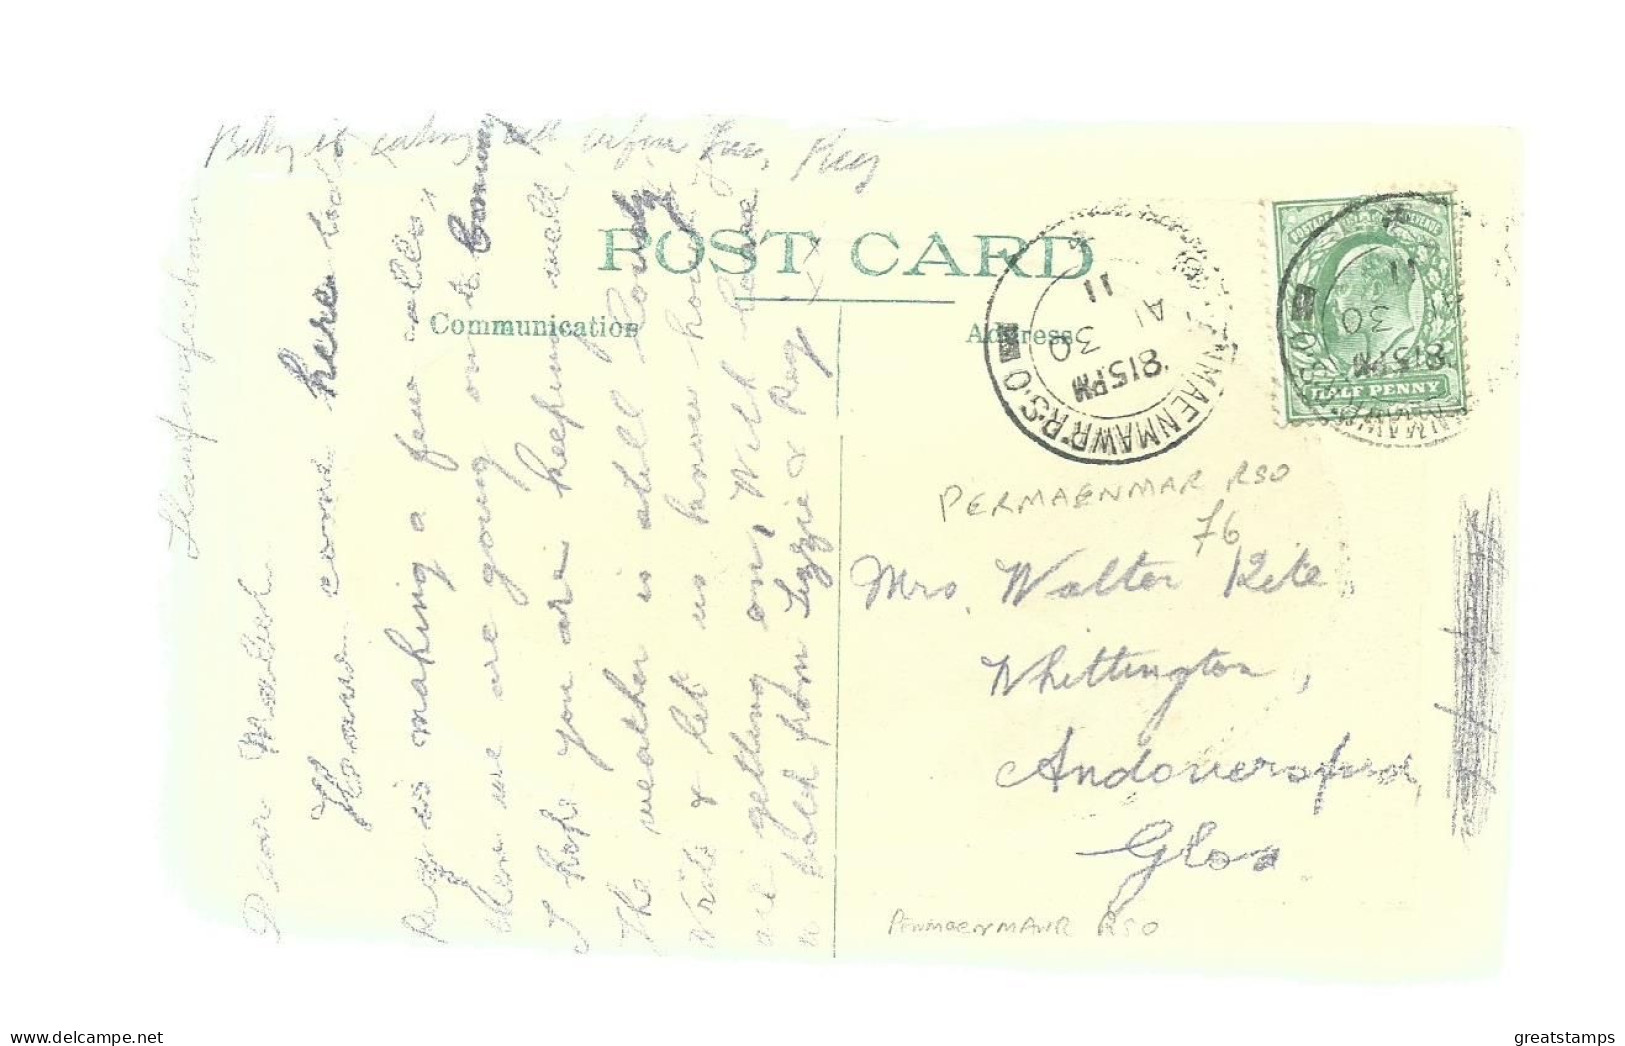 Llanfairfechan
Dear Mabel
Have come here but
Ray is making a few calls,
then we are going on to Conway
I hope you are keeping well,
The weather is still lovely
Write & let us know how you
are getting on, With love
to both from Lizzie & Ray
Betty is eating well
POST CARD
Communication
Address
PENMAENMAWR R.S.O
8.15PM
30
11
HALF PENNY
8.15PM
30
11
PERMAENMAR RSO
76
Mrs. Walter Kite
Whittington,
Andoversford,
Glos
PENMAENMAWR RSO
www.delcampe.net
greatstamps